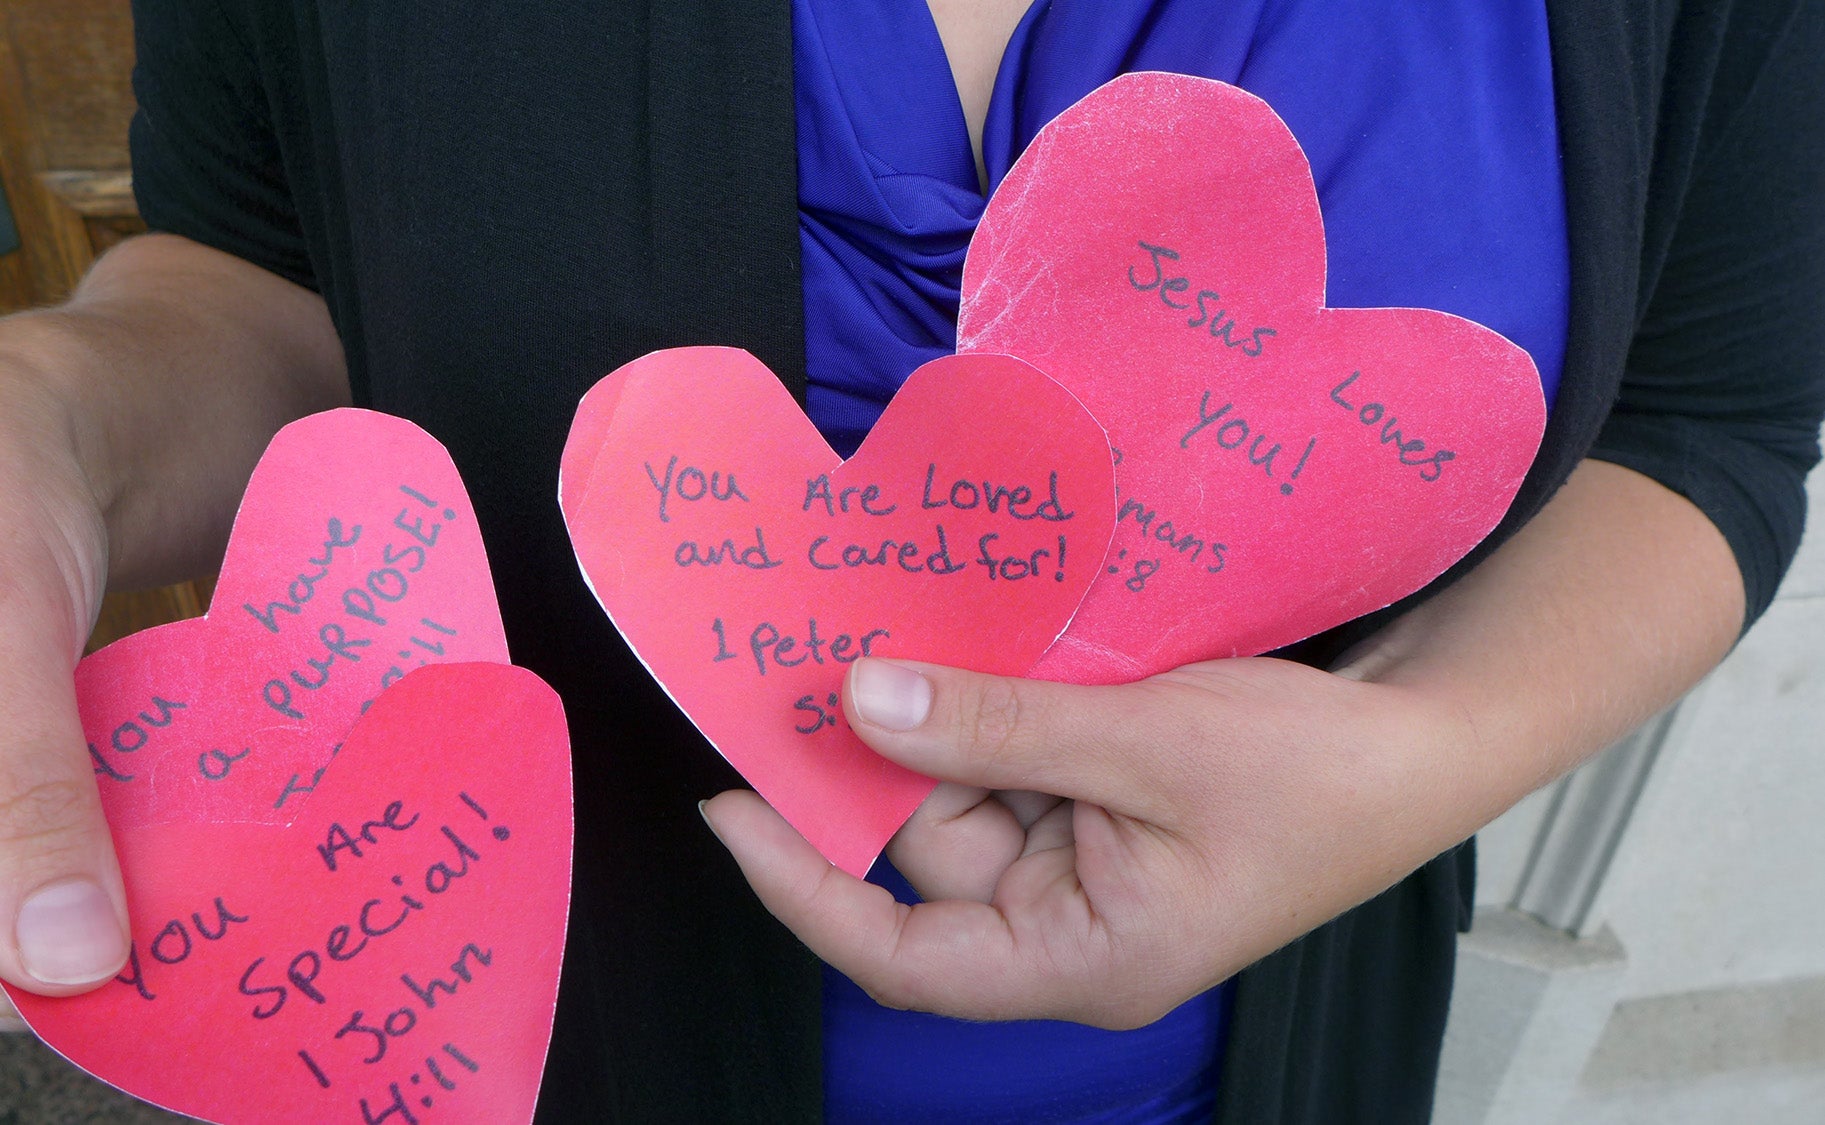 You have
a PURPOSE!
You Are
Special!
1 John
4:11
You Are Loved
and cared for!
1 Peter
5:
Jesus Loves
You!
mans
:8